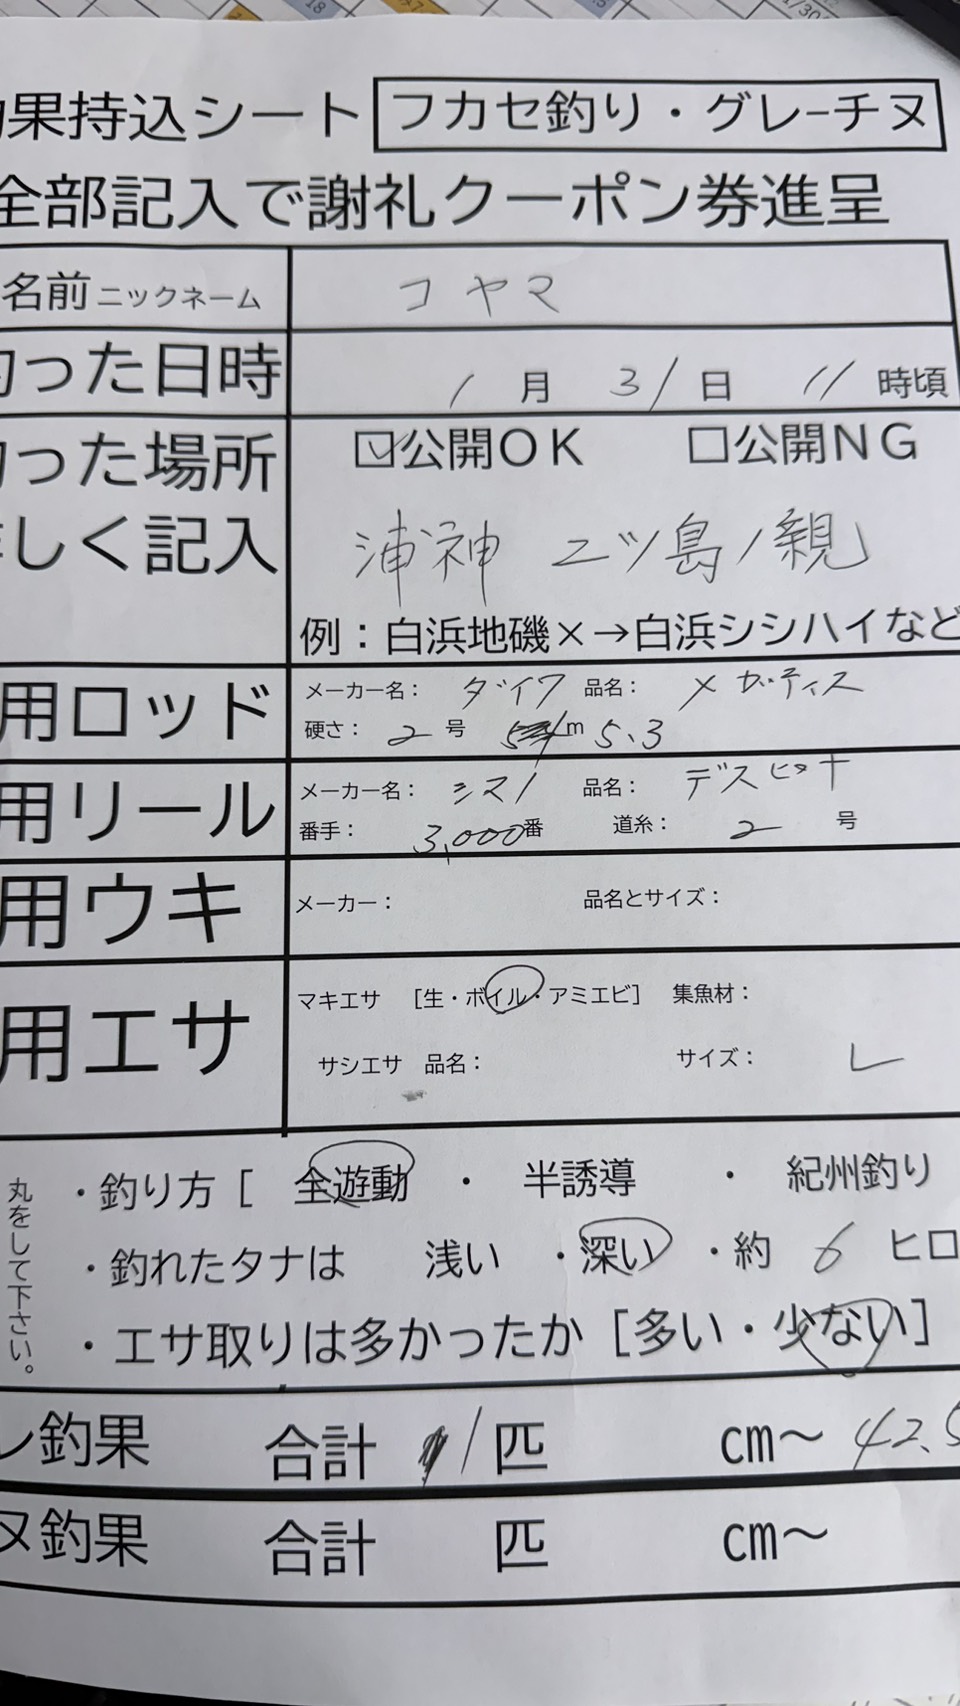 果持込シート フカセ釣り・グレーチヌ
全部記入で謝礼クーポン券進呈
名前ニックネーム コヤマ
釣った日時 1月31日 11時頃
釣った場所 ☑公開OK □公開NG
しく記入 浦神 二ツ島ノ親
例：白浜地磯×→白浜シシハイなど
用ロッド メーカー名： ダイワ 品名： メガディス
硬さ： 2号 m 5.3
用リール メーカー名： シマノ 品名： デスピナ
番手： 3,000番 道糸： 2号
用ウキ メーカー： 品名とサイズ：
用エサ マキエサ [生・ボイル・アミエビ] 集魚材：
サシエサ 品名： サイズ： L
丸をして下さい。
・釣り方 [ 全遊動 ・ 半誘導 ・ 紀州釣り
・釣れたタナは 浅い ・深い ・約 6 ヒロ
・エサ取りは多かったか [多い・少ない]
レ釣果 合計 1匹 cm～ 42.5
ヌ釣果 合計 匹 cm～